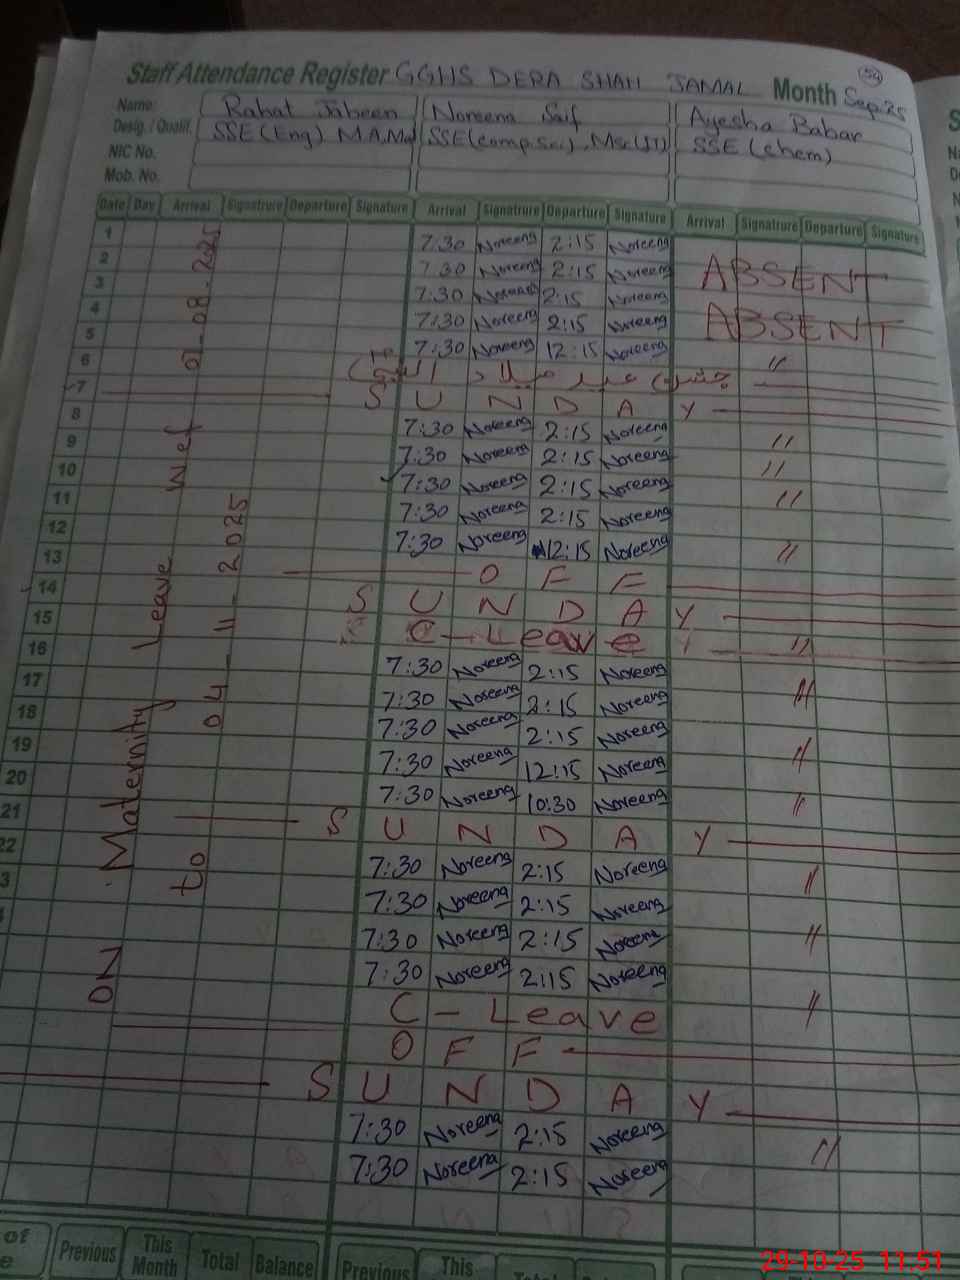 54
Staff Attendance Register GGHS DERA SHAH JAMAL Month Sep.25
Name: Rahat Jabeen Noreena Saif Ayesha Babar
Desig./Qualif. SSE(Eng) M.A, SSE(comp.Sci), Msc(IT) SSE (chem)
NIC No.
Mob. No.
Date Day Arrival Signatrure Departure Signature Arrival Signatrure Departure Signature Arrival Signatrure Departure Signature
ON Maternity Leave w.ef 01-08-2025
to 04-11-2025
1 7:30 Noreena 2:15 Noreena
2 7:30 Noreena 2:15 Noreena ABSENT
3 7:30 Noreena 2:15 Noreena
4 7:30 Noreena 2:15 Noreena ABSENT
5 7:30 Noreena 12:15 Noreena "
6 جشن عید میلاد النبی
7 S U N D A Y
8 7:30 Noreena 2:15 Noreena "
9 7:30 Noreena 2:15 Noreena "
10 7:30 Noreena 2:15 Noreena "
11 7:30 Noreena 2:15 Noreena
12 7:30 Noreena 12:15 Noreena "
13 O F F
14 S U N D A Y
15 C-Leave "
16 7:30 Noreena 2:15 Noreena
17 7:30 Noreena 2:15 Noreena "
18 7:30 Noreena 2:15 Noreena
19 7:30 Noreena 12:15 Noreena "
20 7:30 Noreena 10:30 Noreena "
21 S U N D A Y
22 7:30 Noreena 2:15 Noreena "
3 7:30 Noreena 2:15 Noreena
7:30 Noreena 2:15 Noreena "
7:30 Noreena 2:15 Noreena
C-Leave "
O F F
S U N D A Y
7:30 Noreena 2:15 Noreena "
7:30 Noreena 2:15 Noreena
of Previous This Month Total Balance Previous This
29-10-25 11.51